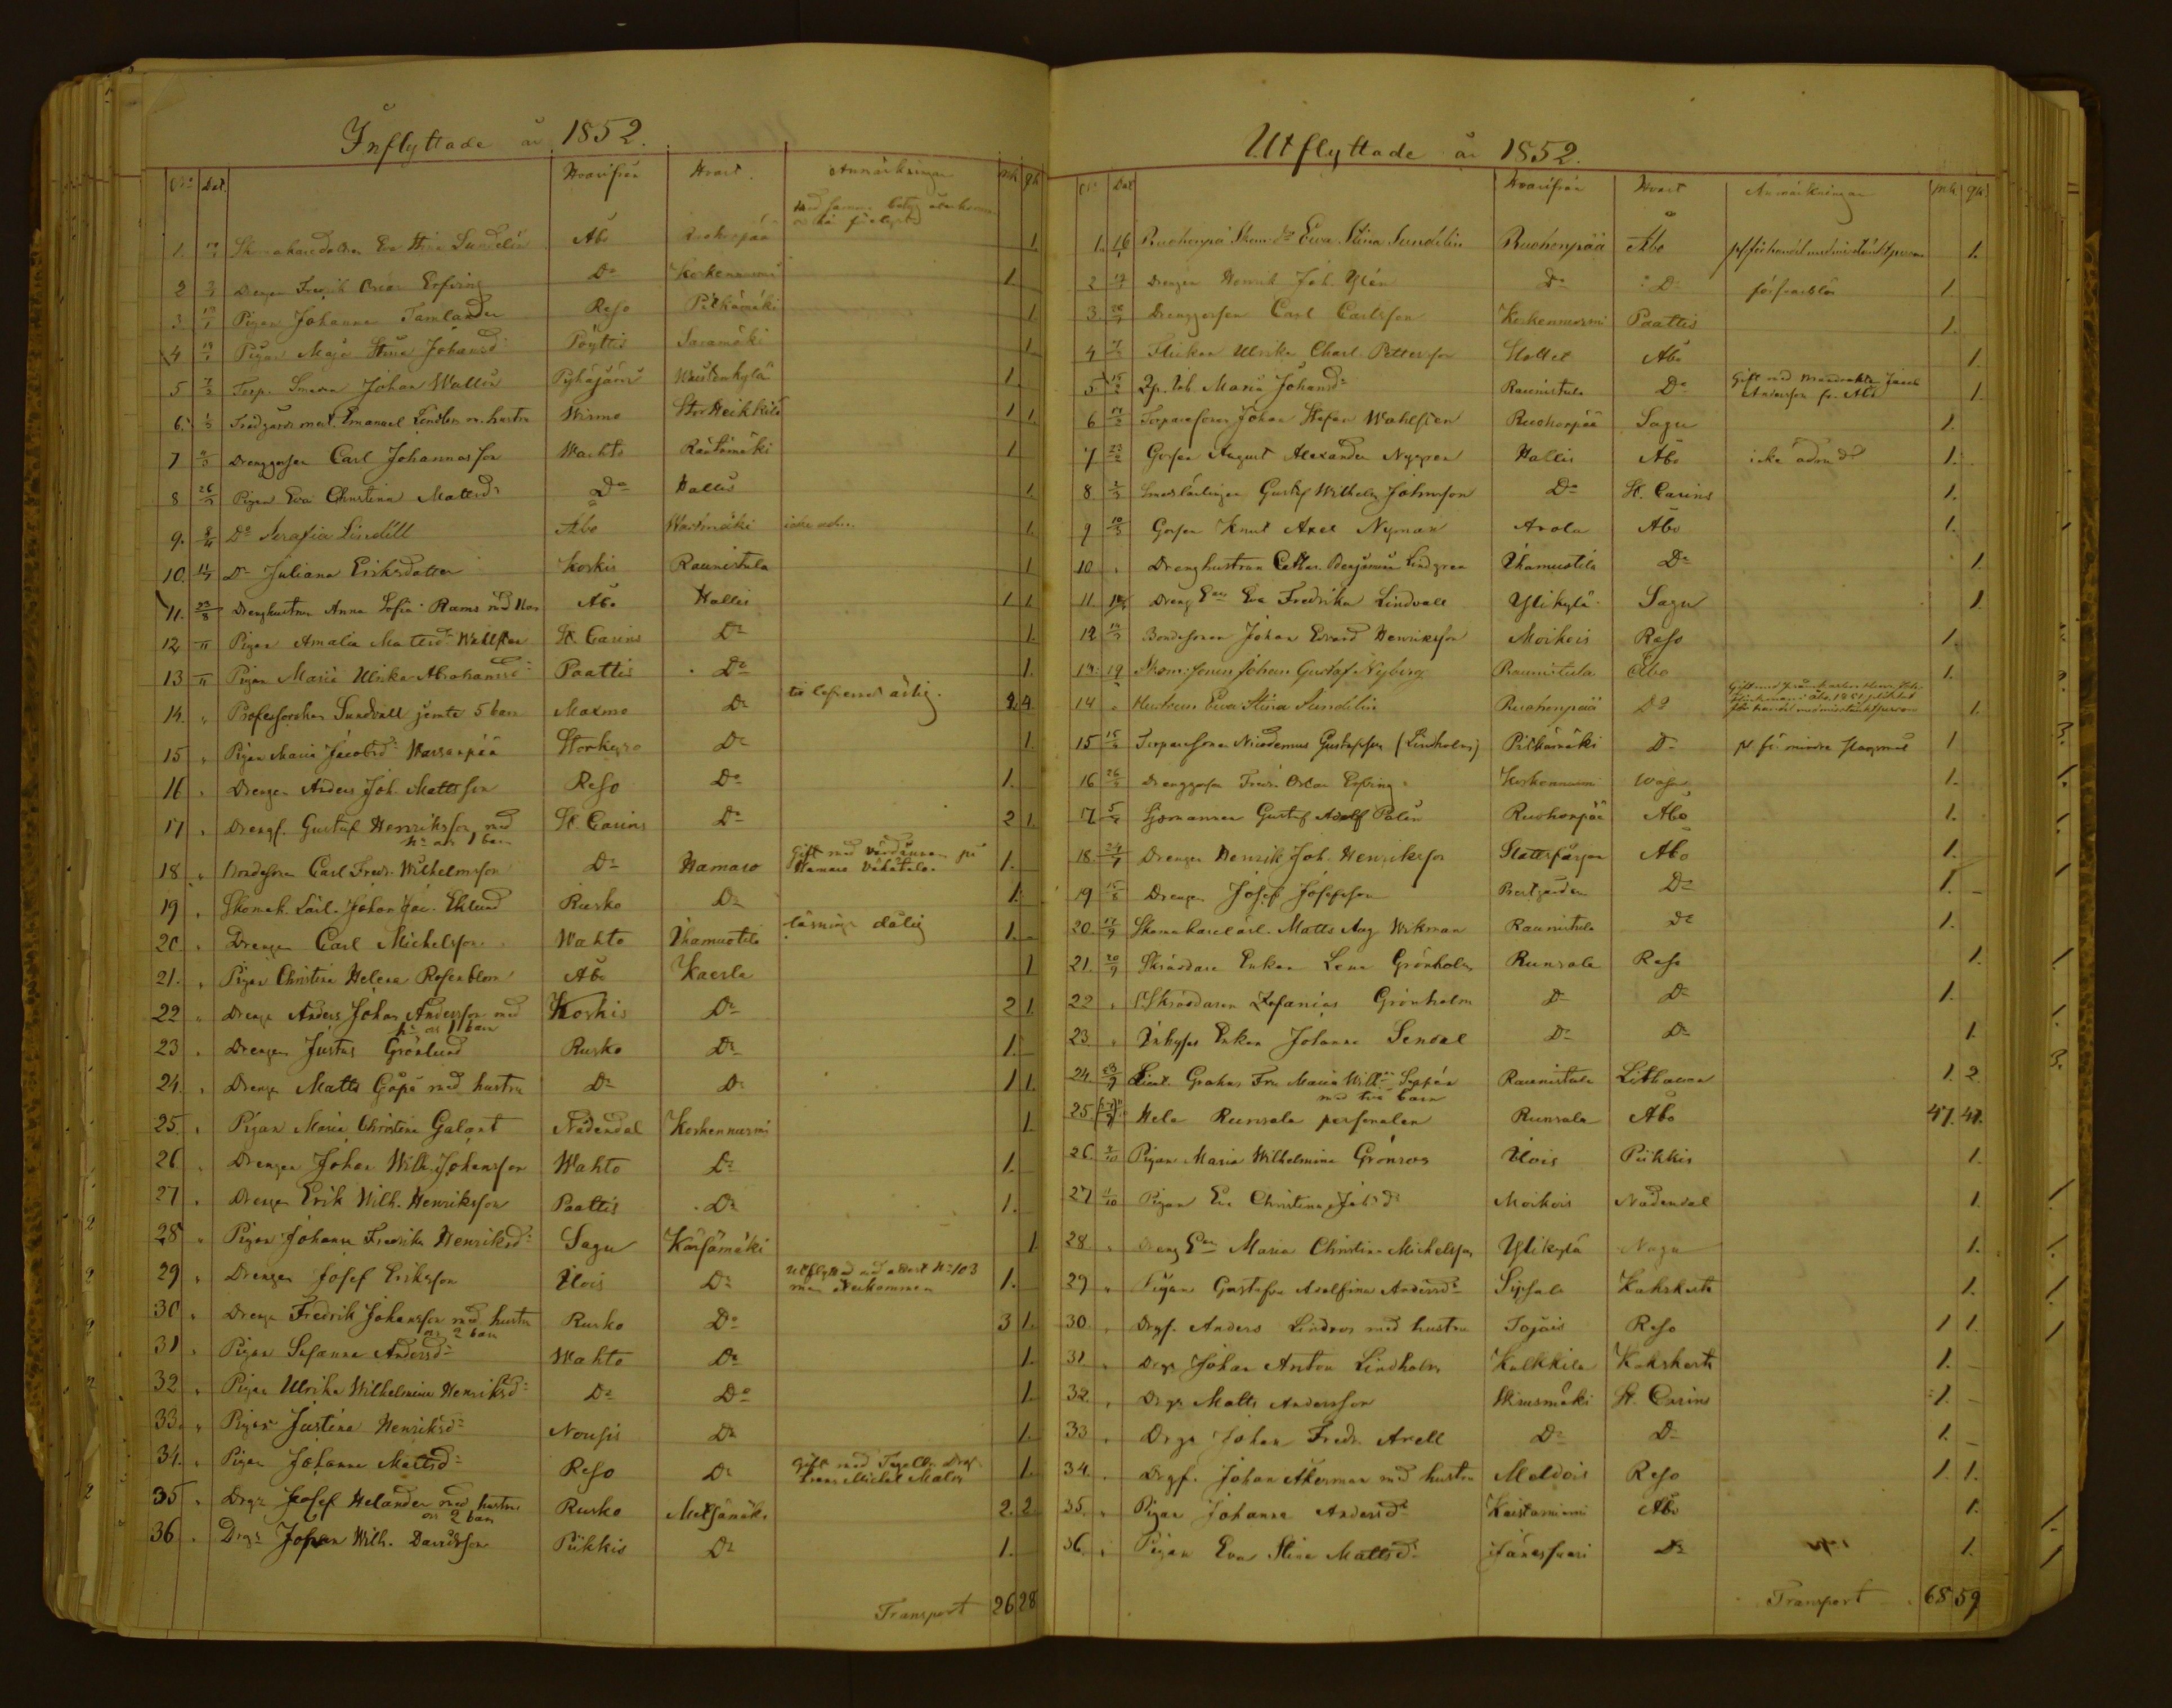 Inflyttade år 1852.
No Dat. Hvarifrån Hvart. Anmärkningar mk qk
1. Skomakaredottren Eva Stina Sundelin Åbo Ruohonpää 1.
2 Drengen Fredrik Oscar Erfving Do Koskennurmi 1.
3. Pigan Johanna Tamlander Reso Pitkämäki 1.
4 Pigan Maja Stina Johansd: Pöyttis Saramäki 1.
5 Torp. Sonen Johan Wallin Pyhäjärvi 1.
6. Trädgårdsmest. Emanuel Lindlen m. hustru Wirmo StorHeikkilä 1 1.
7 Drenggossen Carl Johannesson Wachto Räntämäki 1
8 26 Pigan Eva Christina Mattsd: Do Hallis 1.
9. Do Serafia Lindell Åbo 1.
10. Do Juliana Eriksdotter Koskis Raunistula 1
11. 23/8 Drenghustrun Anna Sofia Rams med Åbo Hallis 1 1.
12 " Pigan Amalia Mattsd: Wallsten St. Carins Do 1.
13 " Pigan Maria Ulrika Abrahamsd: Paattis Do 1.
14. " Professorskan Sundvall jemte 5 barn Maxmo Do 2. 4.
15 " Pigan Maria Jacobsd: Warranpää Storkyro Do 1.
16 " Drengen Anders Joh. Mattsson Reso Do 1.
17 " Drengf. Gustaf Henriksson med St. Carins Do 2 1.
hu och 1 barn
18 " Bondesonen Carl Fredr. Wilhelmsson Do Hamaro Gift med på 1.
19 " Skomak. Lärl. Johan Jac. Eklund Rusko Do 1.
20 " Drengen Carl Michelsson Wahto Ihamuotila läsning dålig 1.
21. " Pigan Christina Helena Rosenblom Åbo Kaerla 1
22 " Drengen Anders Johan Andersson med Koskis Do 2 1.
hu och 1 barn
23 " Drengen Justus Grönlund Rusko Do 1.
24. " Drengen Matts Göpä med hustru Do Do 1 1.
25. " Pigan Maria Christina Galant Nådendal Koskennurmi 1.
26 " Drengen Johan Wilh. Johansson Wahto Do 1.
27 " Drengen Erik Wilh. Henriksson Paattis Do 1.
28 " Pigan Johanna Fredrika Henriksd: Sagu Kärsämäki 1.
29 " Drengen Josef Eriksson Ilois Do Utflyttad med attest No 103 1.
men återkommen
30 " Drengen Fredrik Johansson med hustru Rusko Do 3 1.
och 2 barn
31 " Pigan Susanna Andersd: Wahto Do 1.
32. " Pigan Ulrika Wilhelmina Henriksd: Do Do 1.
33. " Pigan Justina Henriksd: Nousis Do 1.
34. " Pigan Johanna Mattsd: Reso Do Gift med 1.
35 " Drgn Josef Helander med hustru Rusko Metsämäki 2. 2
och 2 barn
36 " Drgn Johan Wilh. Davidsson Piikkis Do 1.
Transport 26 28
Utflyttade år 1852.
No Dat Hvarifrån Hvart Anmärkningar mk. qk.
1. 16/1 Ruohonpä Skom. dr Eva Stina Sundelin Ruohonpää Åbo 1.
2 Drengen Henrik Joh. Ylén Do Do 1.
3 Drenggossen Carl Carlsson Koskennurmi Paattis 1.
4 Flickan Ulrika Charl. Pettersson Slottet Åbo 1.
5 Maria Johansd: Raunistula Do Gift med 1.
Andersson fr. Åbo
6 Torparesonen Johan Stefan Wahlsten Ruohonpää Sagu 1.
7 Gossen August Alexander Nygren Hallis Åbo 1.
8. Smedslärlingen Gustaf Wilhelm Johnsson Do St. Carins 1.
9 10/3 Gossen Knut Axel Nyman Arola Åbo 1.
10 " Drenghustrun Cath. Benjamin Lindgren Ihamuotila Do 1.
11. Dreng En Eva Fredrika Lindvall Ylikylä Sagu 1.
12 Bondesonen Johan Edvard Henriksson Moikois Reso 1.
13. 19 Skom: sonen Johan Gustaf Nyberg Raunistula Åbo 1.
14 " Hustrun Eva Stina Sundelin Ruohonpää Do 1.
15 Torparesonen Nicodemus Gustafsson (Lindholm) Pitkämäki Do för mindre 1
16 26 Drenggossen Fredr. Oscar Erfving Koskennurmi Wasa 1.
17 5 Sjömannen Gustaf Adolf Palin Ruohonpää Åbo 1.
18. 24 Drengen Henrik Joh. Henriksson Slottsfärjan Åbo 1.
19 15/8 Drengen Josef Josefsson Do 1.
20 Skomakarelärl. Matts Aug. Wikman Raunistula Do 1.
21. 20/9 Skräddare Enkan Lena Grönholm Runsala Reso 1.
22 " Skräddaren Zefanias Grönholm Do Do 1.
23. " Inhyses Enkan Johanna Sendal Do Do 1.
24 23/9 Lieut. Grahns Fru Maria Raunistula Lithauen 1. 2.
med två barn
25. Hela Runsala personalen Runsala Åbo 47. 47.
26 /10 Pigan Maria Wilhelmina Grönroos Ilois Piikkis 1.
27 /10 Pigan Eva Christina Moikois Nådendal 1.
28 " Dreng En Maria Christina Michelsson Ylikylä Nagu 1.
29 " Pigan Gustafva Adolfina Andersd: Sipsala Kakskerta 1.
30 " Drgf. Anders Lindros med hustru Tojais Reso 1 1.
31 " Drgn Johan Anton Lindholm Kalkkila Kakskerta 1.
32. " Drgn Matts Andersson St. Carins 1.
33 " Drgn Johan Fredr. Axell Do Do 1.
34. " Drgf. Johan Åkerman med hustru Moldois Reso 1. 1.
35. " Pigan Johanna Andersd: Kaistarniemi Åbo 1.
36. " Pigan Eva Stina Mattsd: Jänessaari Do 1.
Transport 68 59